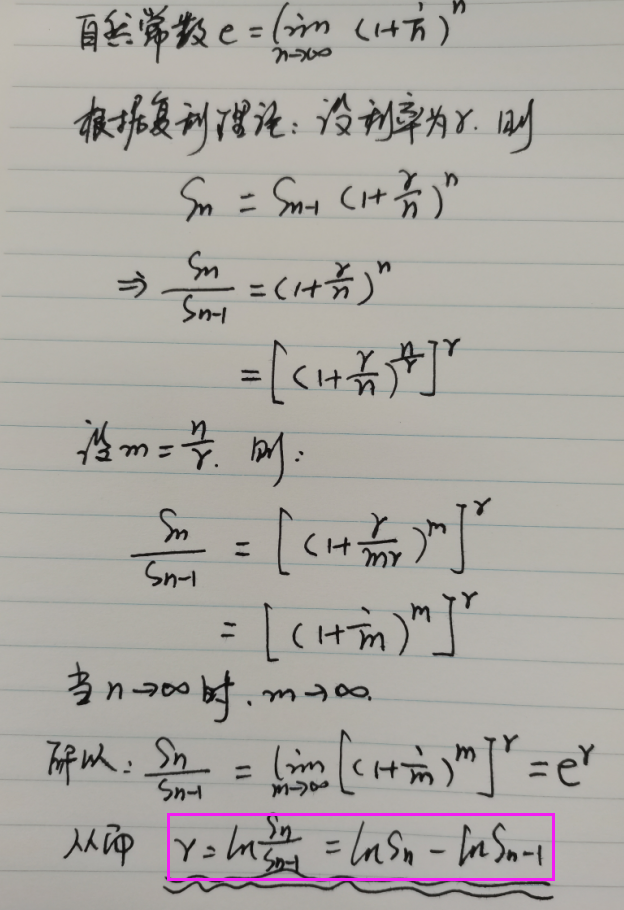 自然常数 e = lim_{n→∞} (1+1/n)^n
根据复利理论:设利率为r.则
S_n = S_{n-1} (1+r/n)^n
⇒ S_n/S_{n-1} = (1+r/n)^n
= [(1+r/n)^{n/r}]^r
设 m = n/r. 则:
S_n/S_{n-1} = [(1+r/mr)^m]^r
= [(1+1/m)^m]^r
当 n→∞ 时. m→∞.
所以: S_n/S_{n-1} = lim_{m→∞} [(1+1/m)^m]^r = e^r
从而 r = ln S_n/S_{n-1} = ln S_n - ln S_{n-1}